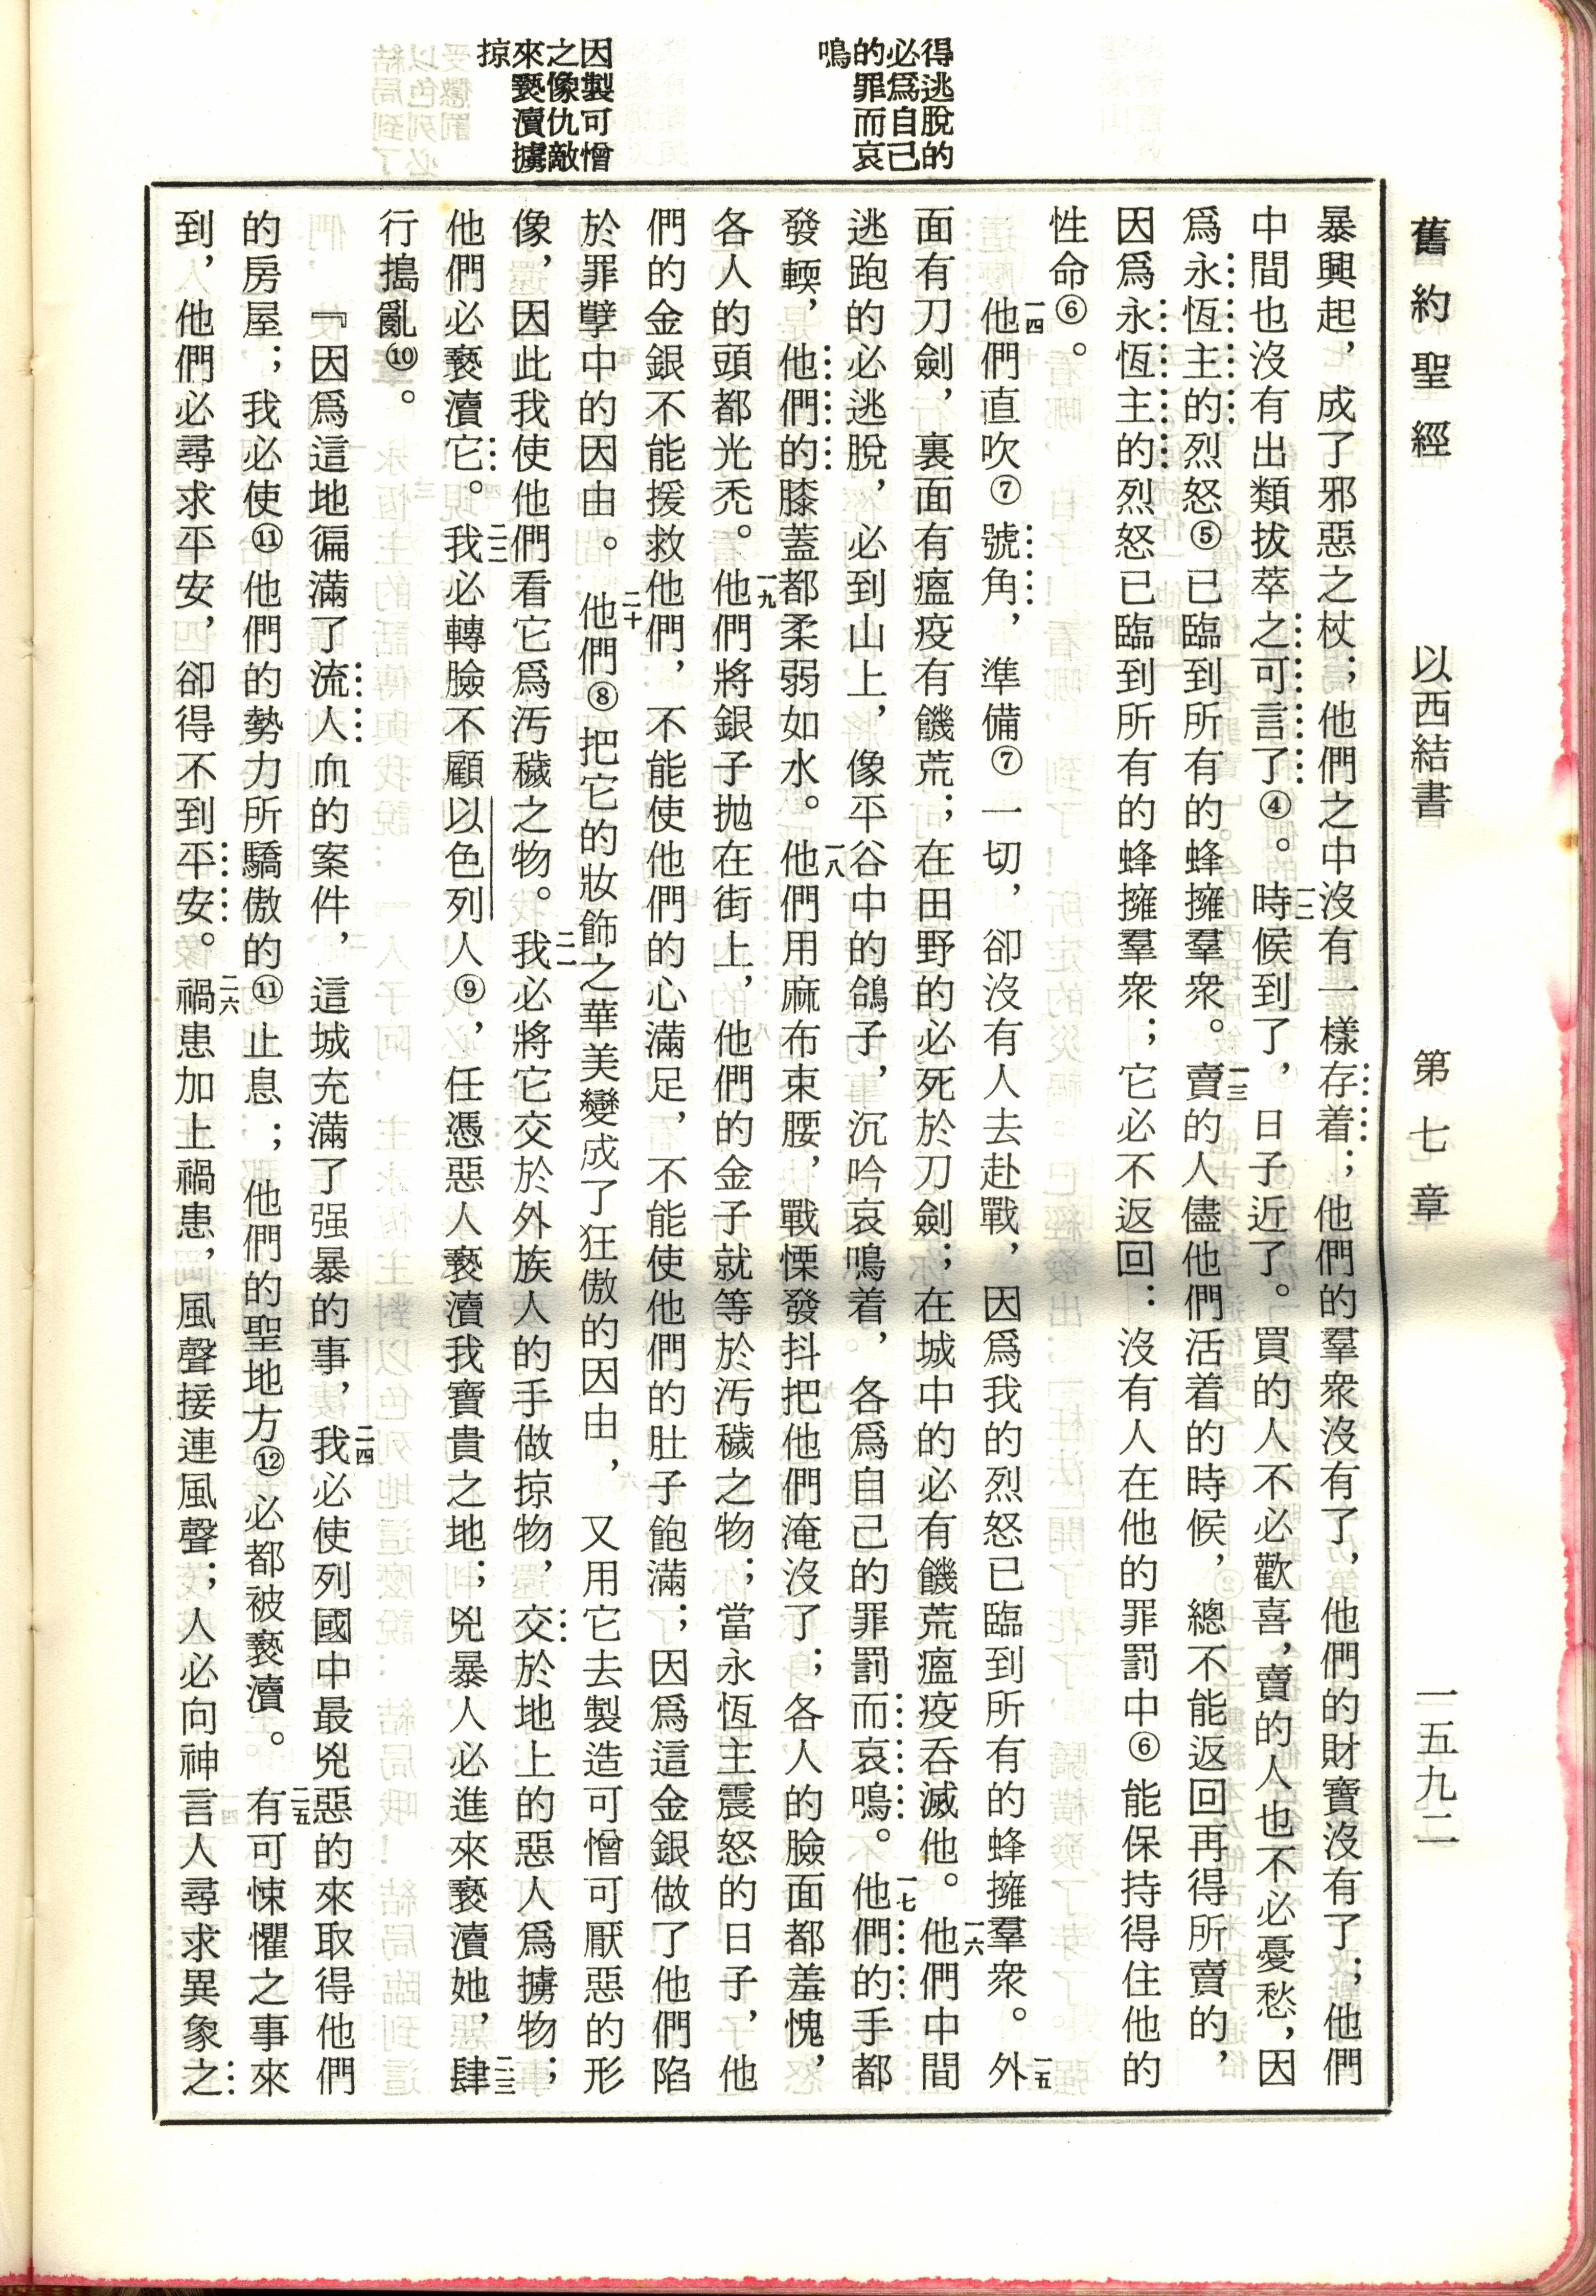 舊約聖經　以西結書　第七章　一五九二
得逃脫的
必爲自己
的罪而哀
鳴
因製可憎
之像仇敵
來褻瀆擄
掠
暴興起，成了邪惡之杖；他們之中沒有一樣存着；他們的羣衆沒有了，他們的財寶沒有了；他們
中間也沒有出類拔萃之可言了④。一二時候到了，日子近了。買的人不必歡喜，賣的人也不必憂愁，因
爲永恆主的烈怒⑤已臨到所有的蜂擁羣衆。一三賣的人儘他們活着的時候，總不能返回再得所賣的，
因爲永恆主的烈怒已臨到所有的蜂擁羣衆；它必不返回：沒有人在他的罪罰中⑥能保持得住他的
性命⑥。
一四他們直吹⑦號角，準備⑦一切，卻沒有人去赴戰，因爲我的烈怒已臨到所有的蜂擁羣衆。一五外
面有刀劍，裏面有瘟疫有饑荒；在田野的必死於刀劍；在城中的必有饑荒瘟疫吞滅他。一六他們中間
逃跑的必逃脫，必到山上，像平谷中的鴿子，沉吟哀鳴着，各爲自己的罪罰而哀鳴。一七他們的手都
發輭，他們的膝蓋都柔弱如水。一八他們用麻布束腰，戰慄發抖把他們淹沒了；各人的臉面都羞愧，
各人的頭都光禿。一九他們將銀子拋在街上，他們的金子就等於汚穢之物；當永恆主震怒的日子，他
們的金銀不能援救他們，不能使他們的心滿足，不能使他們的肚子飽滿；因爲這金銀做了他們陷
於罪孽中的因由。二十他們⑧把它的妝飾之華美變成了狂傲的因由，又用它去製造可憎可厭惡的形
像，因此我使他們看它爲汚穢之物。二一我必將它交於外族人的手做掠物，交於地上的惡人爲擄物；
他們必褻瀆它。二二我必轉臉不顧以色列人⑨，任憑惡人褻瀆我寶貴之地；兇暴人必進來褻瀆她，二三肆
行搗亂⑩。
『因爲這地徧滿了流人血的案件，這城充滿了强暴的事，二四我必使列國中最兇惡的來取得他們
的房屋；我必使⑪他們的勢力所驕傲的⑪止息；他們的聖地方⑫必都被褻瀆。二五有可悚懼之事來
到，他們必尋求平安，卻得不到平安。二六禍患加上禍患，風聲接連風聲；人必向神言人尋求異象之